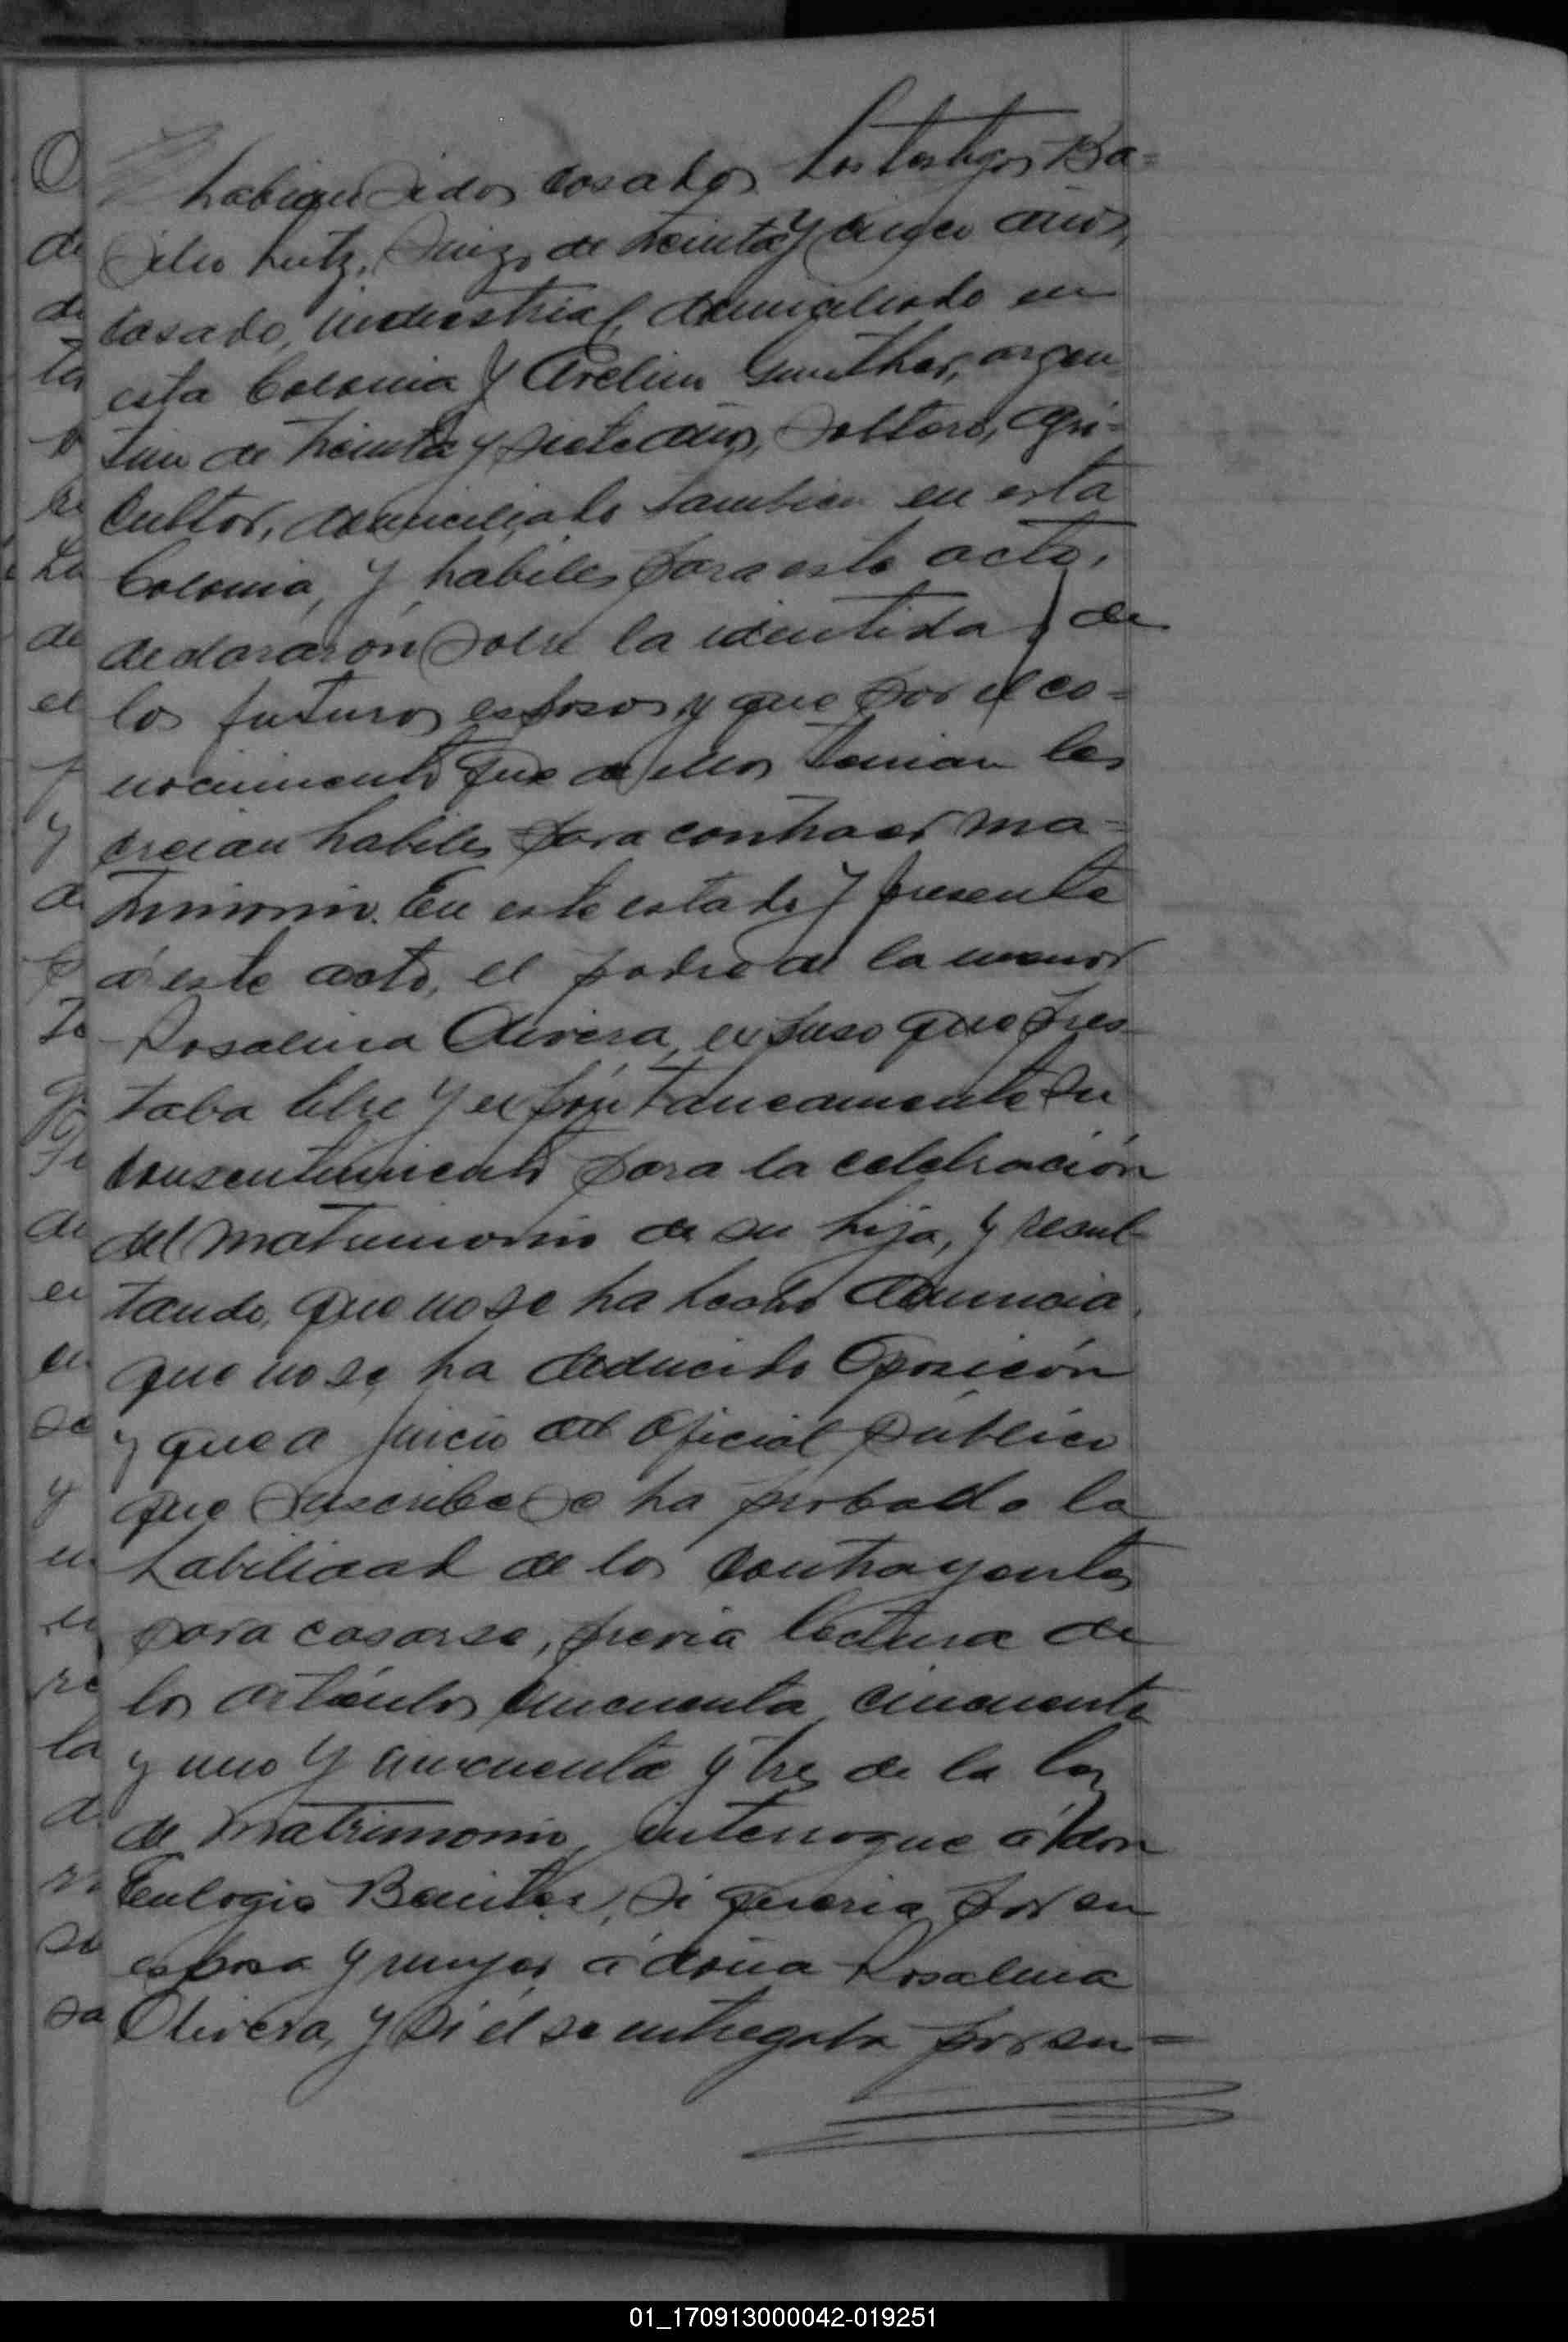 habian sidos casados. Los testigos Ba=
silio Lutz, Suizo de treinta y cinco años,
casado, industrial, domiciliado en
esta Colonia y Avelino Gunther, argen
tino de treinta y siete años, soltero, agri=
cultor, domiciliado tambien en esta
Colonia, y hábiles para este acto,
declararón sobre la identidad de
los futuros esposos, y que por el co=
nocimiento que de ellos tenian los
creian habiles para contraer ma=
trimonio. En este estado y presente
á este acto, el padre de la menor
Rosalina Olivera, expuso que pres
taba libre y expóntaneamente su
consentimiento para la celebración
del matrimonio de su hija, y resul-
tando, que no se ha hecho denuncia,
que no se ha deducido oposición
y que a juicio del oficial público
que suscribe se ha probado la
habilidad de los contrayentes
para casarse, previa lectura de
los articulos cincuenta, cincuenta
y uno y cincuenta y tres de la ley
de matrimonio, interrogue á don
Eulogio Benitez, si queria por su
esposa y mujer á doña Rosalina
Olivera, y si él se entregaba por su=
01_170913000042-019251